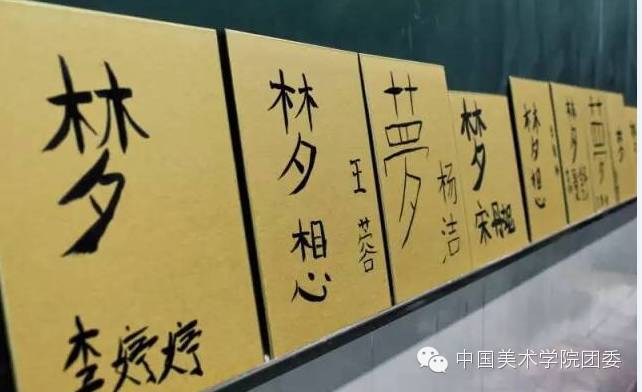 梦
李婷婷
梦想
王蓉
夢
杨洁
梦
宋丹妮
梦想
梦想
夢
梦
中国美术学院团委